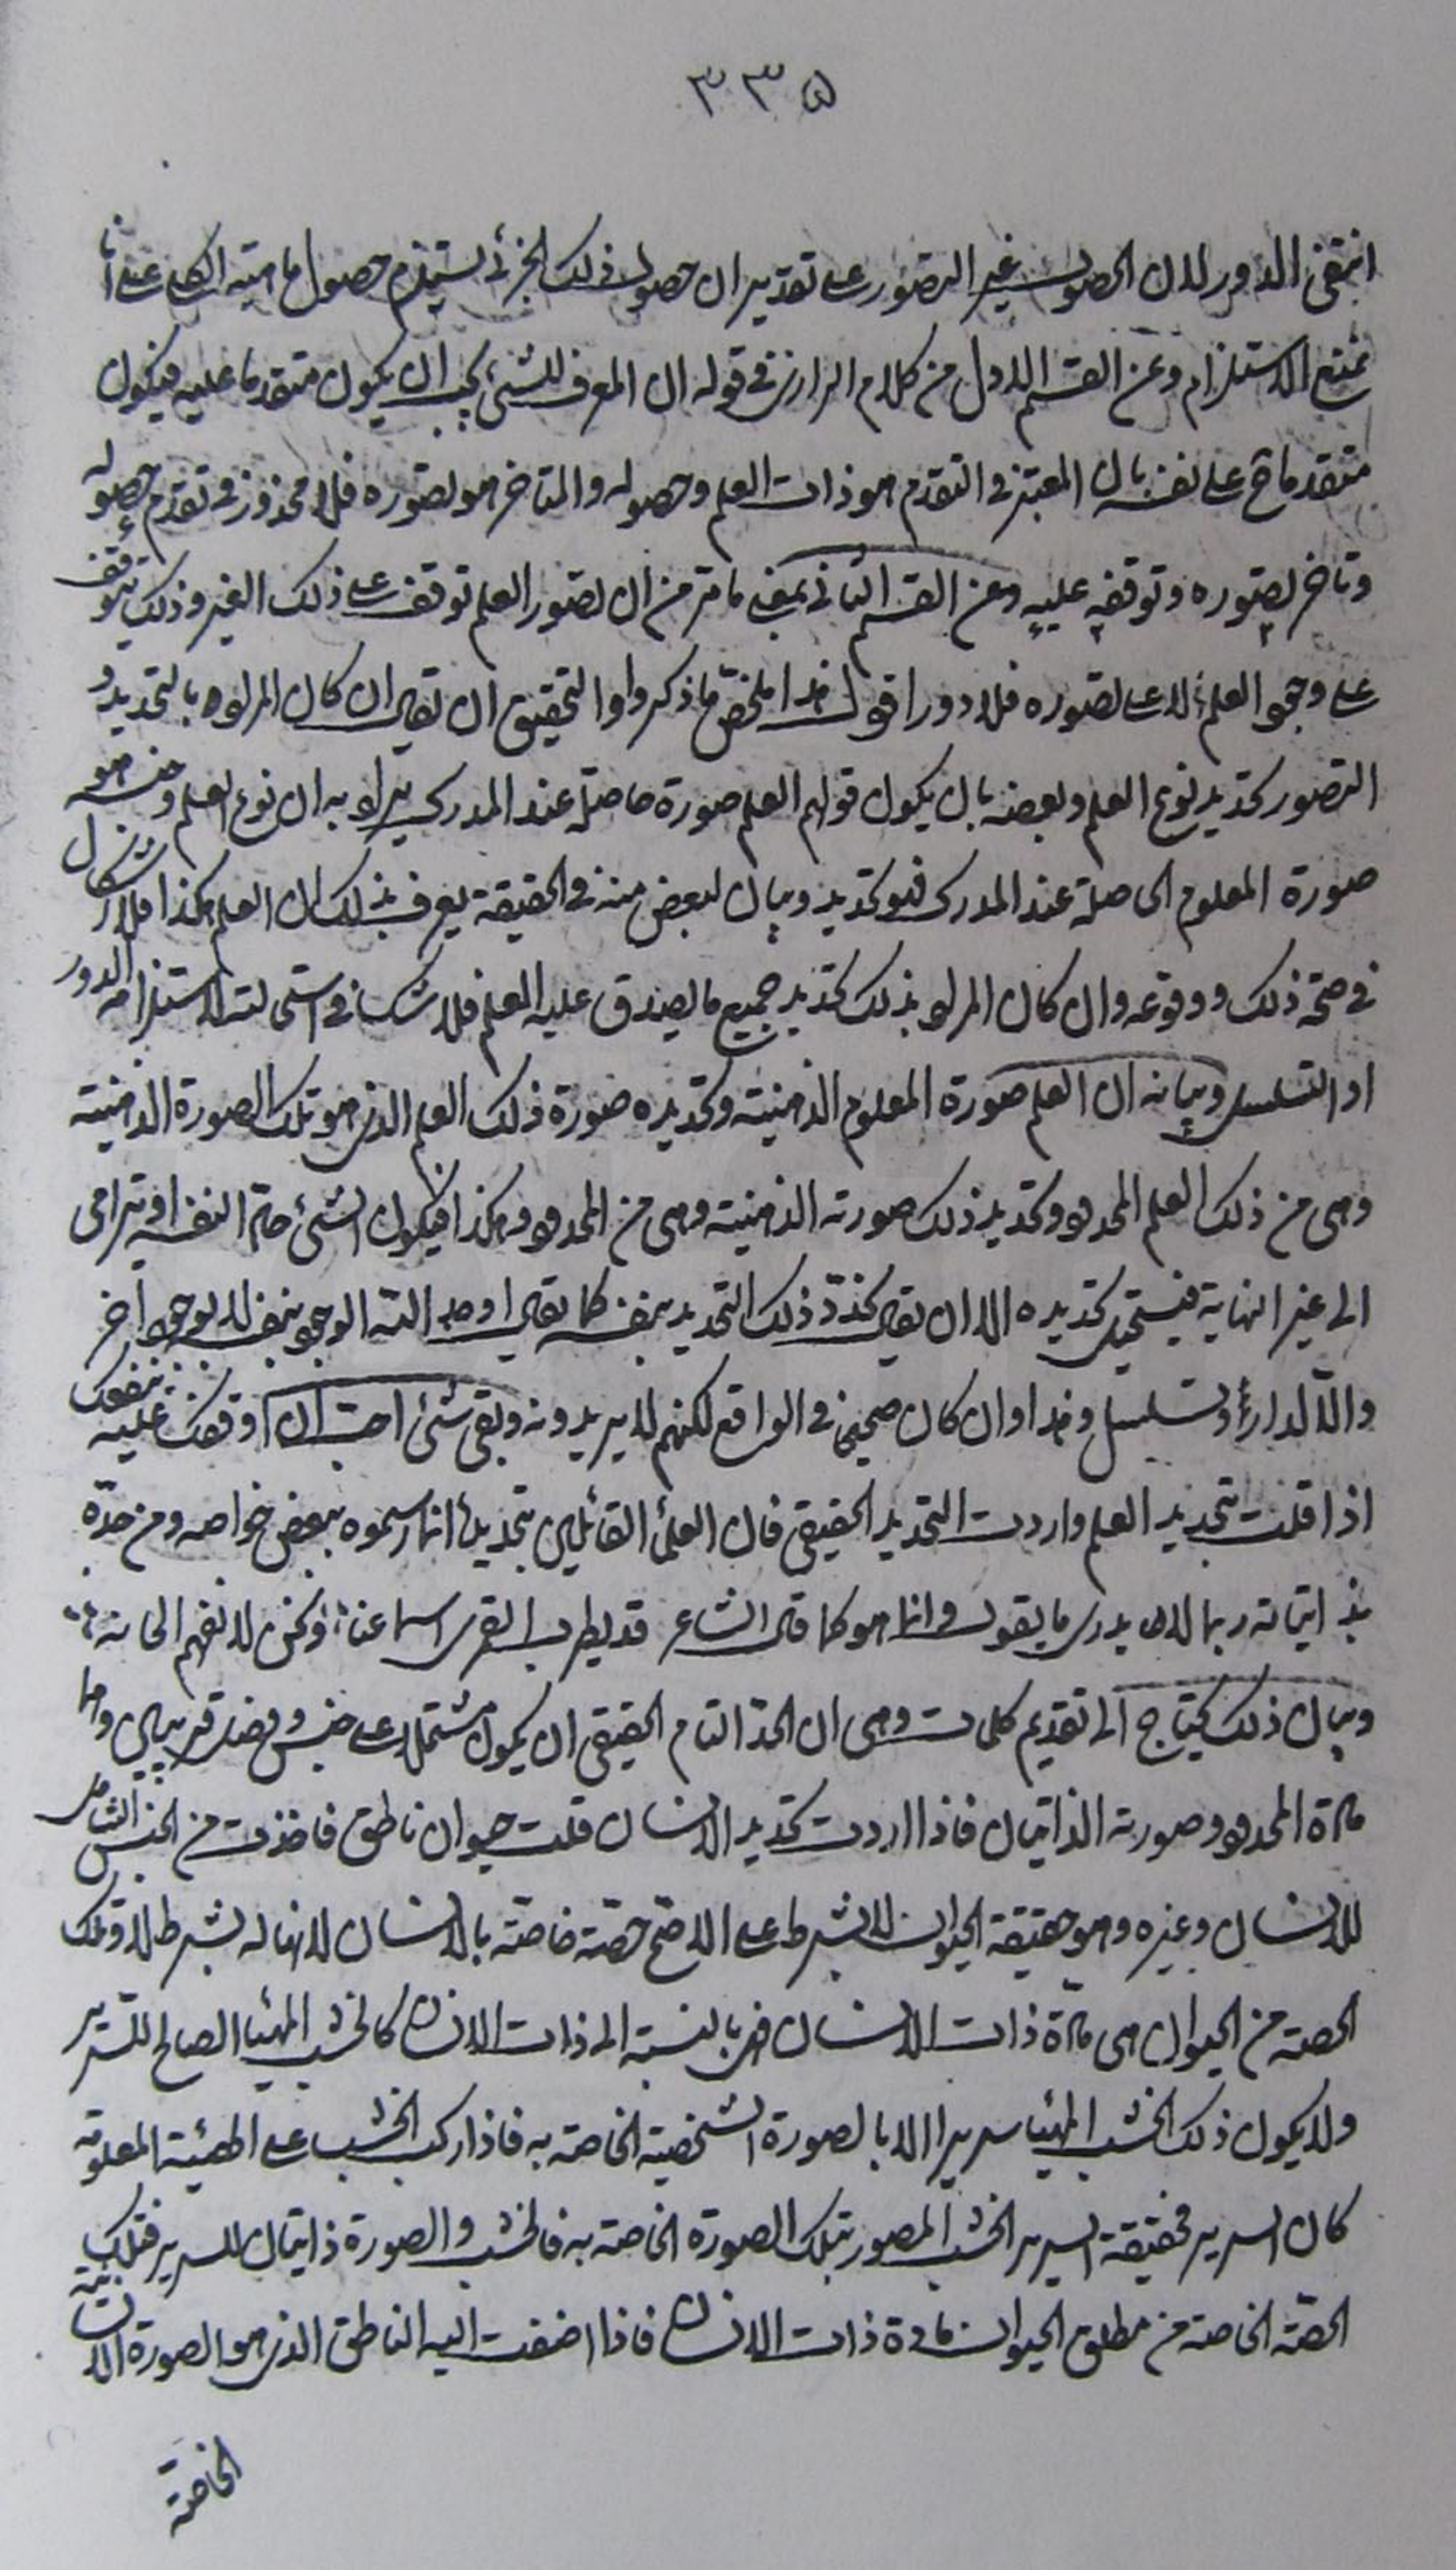 ٣٣٥
انتفى الدور لان الحصول غير التصور على تقدير ان حصول ذلك الجزئى يستلزم حصول ماهيته الكلى على انا
نمنع الاستلزام وعن القسم الاول من كلام الرازى فى قوله ان المعرف للشئ يجب ان يكون متقدما عليه فيكون
متقدما ح على نفسه بان المعتبر فى التقدم هو ذات العلم وحصوله والمتاخر هو تصوره فلا محذور فى تقدم حصوله
وتاخر تصوره وتوقفه عليه وعن القسم الثانى بمعنى ما مر من ان تصور العلم توقف على ذلك الغير وذلك يتوقف
على وجود العلم لا على تصوره فلا دور اقول هذا ملخص ما ذكروا والتحقيق ان يقال ان كان المراد بالتحديد و
التصور تحديد نوع العلم وبعضه بان يكون قولهم العلم صورة حاصلة عند المدرك يراد به ان نوع العلم وجنسه هو
صورة المعلوم الحاصلة عند المدرك فهو تحديد وبيان لبعض منه فى الحقيقة يعرف بذلك ان العلم هكذا فلا اشكال
فى صحة ذلك ووقوعه وان كان المراد بذلك تحديد جميع ما يصدق عليه العلم فلا شك فى استحالته لاستلزامه الدور
او التسلسل وبيانه ان العلم صورة المعلوم الذهنية وتحديده صورة ذلك العلم الذى هو تلك الصورة الذهنية
وهى من ذلك العلم المحدود وتحديد ذلك صورته الذهنية وهى من المحدود وهكذا فيكون الشئ حادا لنفسه او يترامى
الى غير النهاية فيستحيل تحديده الا ان يقال يحد ذلك التحديد بنفسه كما يقال اوجد الله الوجود بنفسه لا بوجود اخر
والا لدار او تسلسل وهذا وان كان صحيحا فى الواقع لكنهم لا يريدونه وبقى شئ احب ان اوقفك عليه ينفعك
اذا قلت بتحديد العلم واردت التحديد الحقيقى فان العلماء القائلين بتحديده انما رسموه ببعض خواصه ومن حده
بذاتياته ربما لا يدرى ما يقول وانما هو كما قال الشاعر قد يطرب القمرى اسماعنا ونحن لا نفهم الحانه
وبيان ذلك يحتاج الى تقديم كلمات وهى ان الحد التام الحقيقى ان يكون مشتملا على جنس وفصل قريبين وهما
مادة المحدود وصورته الذاتيان فاذا اردت تحديد الانسان قلت حيوان ناطق فاخذت من الجنس الشامل
للانسان وغيره وهو حقيقة الحيوان لا بشرط على الاصح حصة خاصة بالانسان لانها له بشرط لا وتلك
الحصة من الحيوان هى مادة ذات الانسان فهى بالنسبة الى ذات الانسان كالخشب المهيا الصالح للسرير
ولا يكون ذلك الخشب المهيا سريرا الا بالصورة الشخصية الخاصة به فاذا ركب الخشب على الهيئة المعلومة
كان السرير فحقيقة السرير الخشب المصور بتلك الصورة الخاصة به فالخشب والصورة ذاتيان للسرير فتلك
الحصة الخاصة من مطلق الحيوان مادة ذات الانسان فاذا اضفت اليه الناطق الذى هو الصورة الانسانية
الخاصة